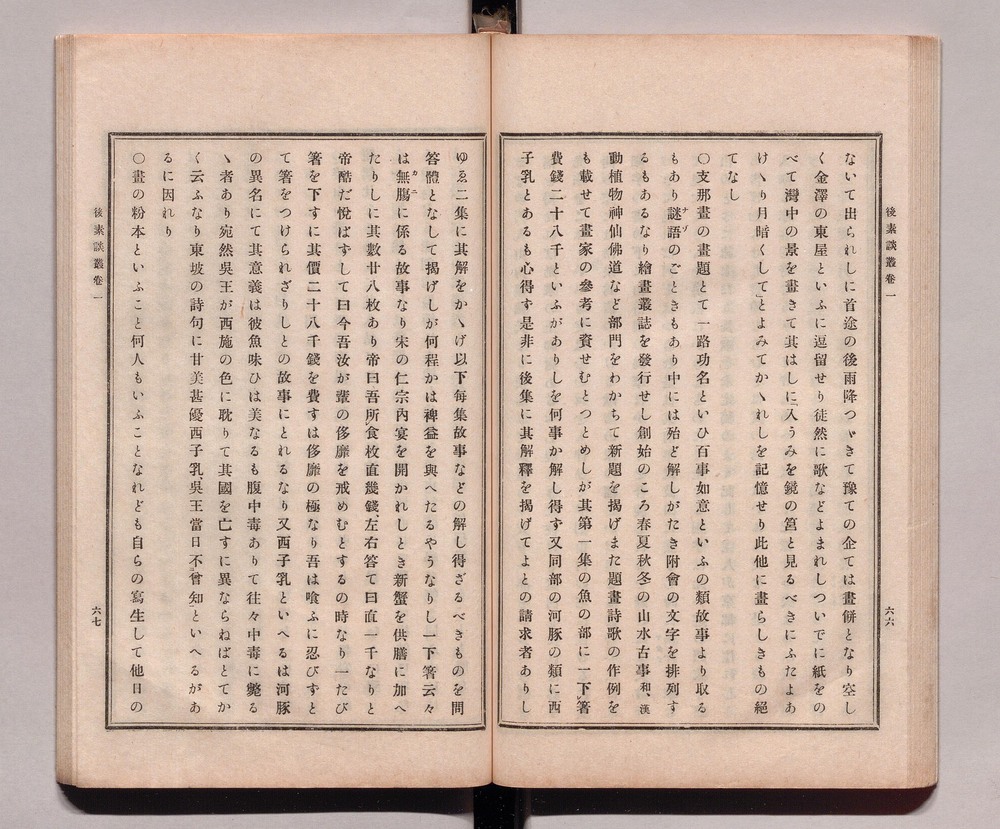 後素談叢卷一
六六
ないて出られしに首途の後雨降つゞきて豫ての企ては畫餠となり空し
く金澤の東屋といふに逗留せり徒然に歌などよまれしついでに紙をの
べて灣中の景を畫きて其はしに「入うみを鏡の筥と見るべきにふたよあ
けヽり月暗くして」とよみてかヽれしを記憶せり此他に畫らしきもの絕
てなし
〇支那畫の畫題とて一路功名といひ百事如意といふの類故事より取る
もあり謎語のごときもあり中には殆ど解しがたき附會の文字を排列す
るもあるなり繪畫叢誌を發行せし創始のころ春夏秋冬の山水古事和、漢
動植物神仙佛道など部門をわかちて新題を揭げまた題畫詩歌の作例を
も載せて畫家の參考に資せむとつとめしが其第一集の魚の部に一下箸
費錢二十八千といふがありしを何事か解し得ず又同部の河豚の類に西
子乳とあるも心得す是非に後集に其解釋を揭げてよとの請求者ありし
ゆゑ二集に其解をかヽげ以下每集故事などの解し得ざるべきものを問
答體となして揭げしが何程かは裨益を與へたるやうなりし一下箸云々
は無膓に係る故事なり宋の仁宗內宴を開かれしとき新蟹を供膳に加へ
たりしに其數廿八枚あり帝曰吾所食枚直幾錢、左右答て曰直一千なりと
帝酷だ悅ばずして曰今吾汝が輩の侈靡を戒めむとするの時なり一たび
箸を下すに其價二十八千錢を費すは侈靡の極なり吾は喰ふに忍びすと
て箸をつけられざりしとの故事にとれるなり又西子乳といへるは河豚
の異名にて其意義は彼魚味ひは美なるも腹中毒ありて往々中毒に斃る
ヽ者あり宛然吳王が西施の色に耽りて其國を亡すに異ならねばとてか
く云ふなり東坡の詩句に甘美甚優西子乳、吳王當日不曾知といへるがあ
るに因れり
〇畫の粉本といふこと何人もいふことなれども自らの寫生して他日の
後素談叢卷一
六七